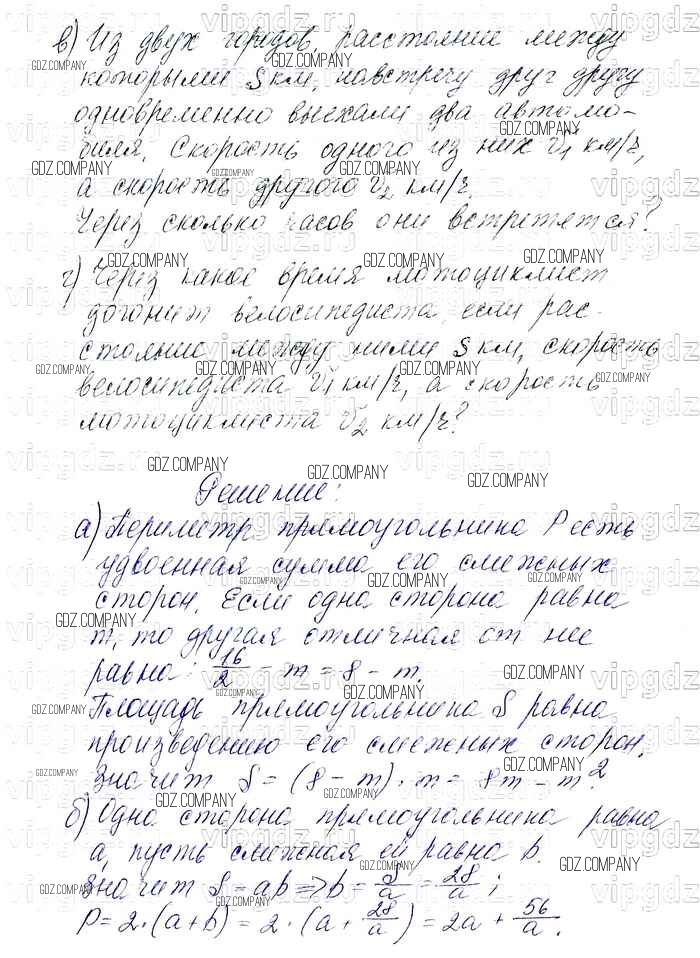 в) Из двух городов, расстояние между
которыми S км, навстречу друг другу
одновременно выехали два автомо-
биля. Скорость одного из них v₁ км/ч,
а скорость другого v₂ км/ч.
Через сколько часов они встретятся?
г) Через какое время мотоциклист
догонит велосипедиста, если рас-
стояние между ними S км, скорость
велосипедиста v₁ км/ч, а скорость
мотоциклиста v₂ км/ч?
Решение:
а) Периметр прямоугольника P есть
удвоенная сумма его смежных
сторон. Если одна сторона равна
m, то другая отличная от нее
равна: 16/2 - m = 8 - m.
Площадь прямоугольника S равна
произведению его смежных сторон,
значит S = (8 - m) · m = 8m - m².
б) Одна сторона прямоугольника равна
a, пусть смежная ей равна b.
Значит S = ab => b = S/a = 28/a ;
P = 2·(a + b) = 2·(a + 28/a) = 2a + 56/a.
GDZ.COMPANY
vipgdz.ru